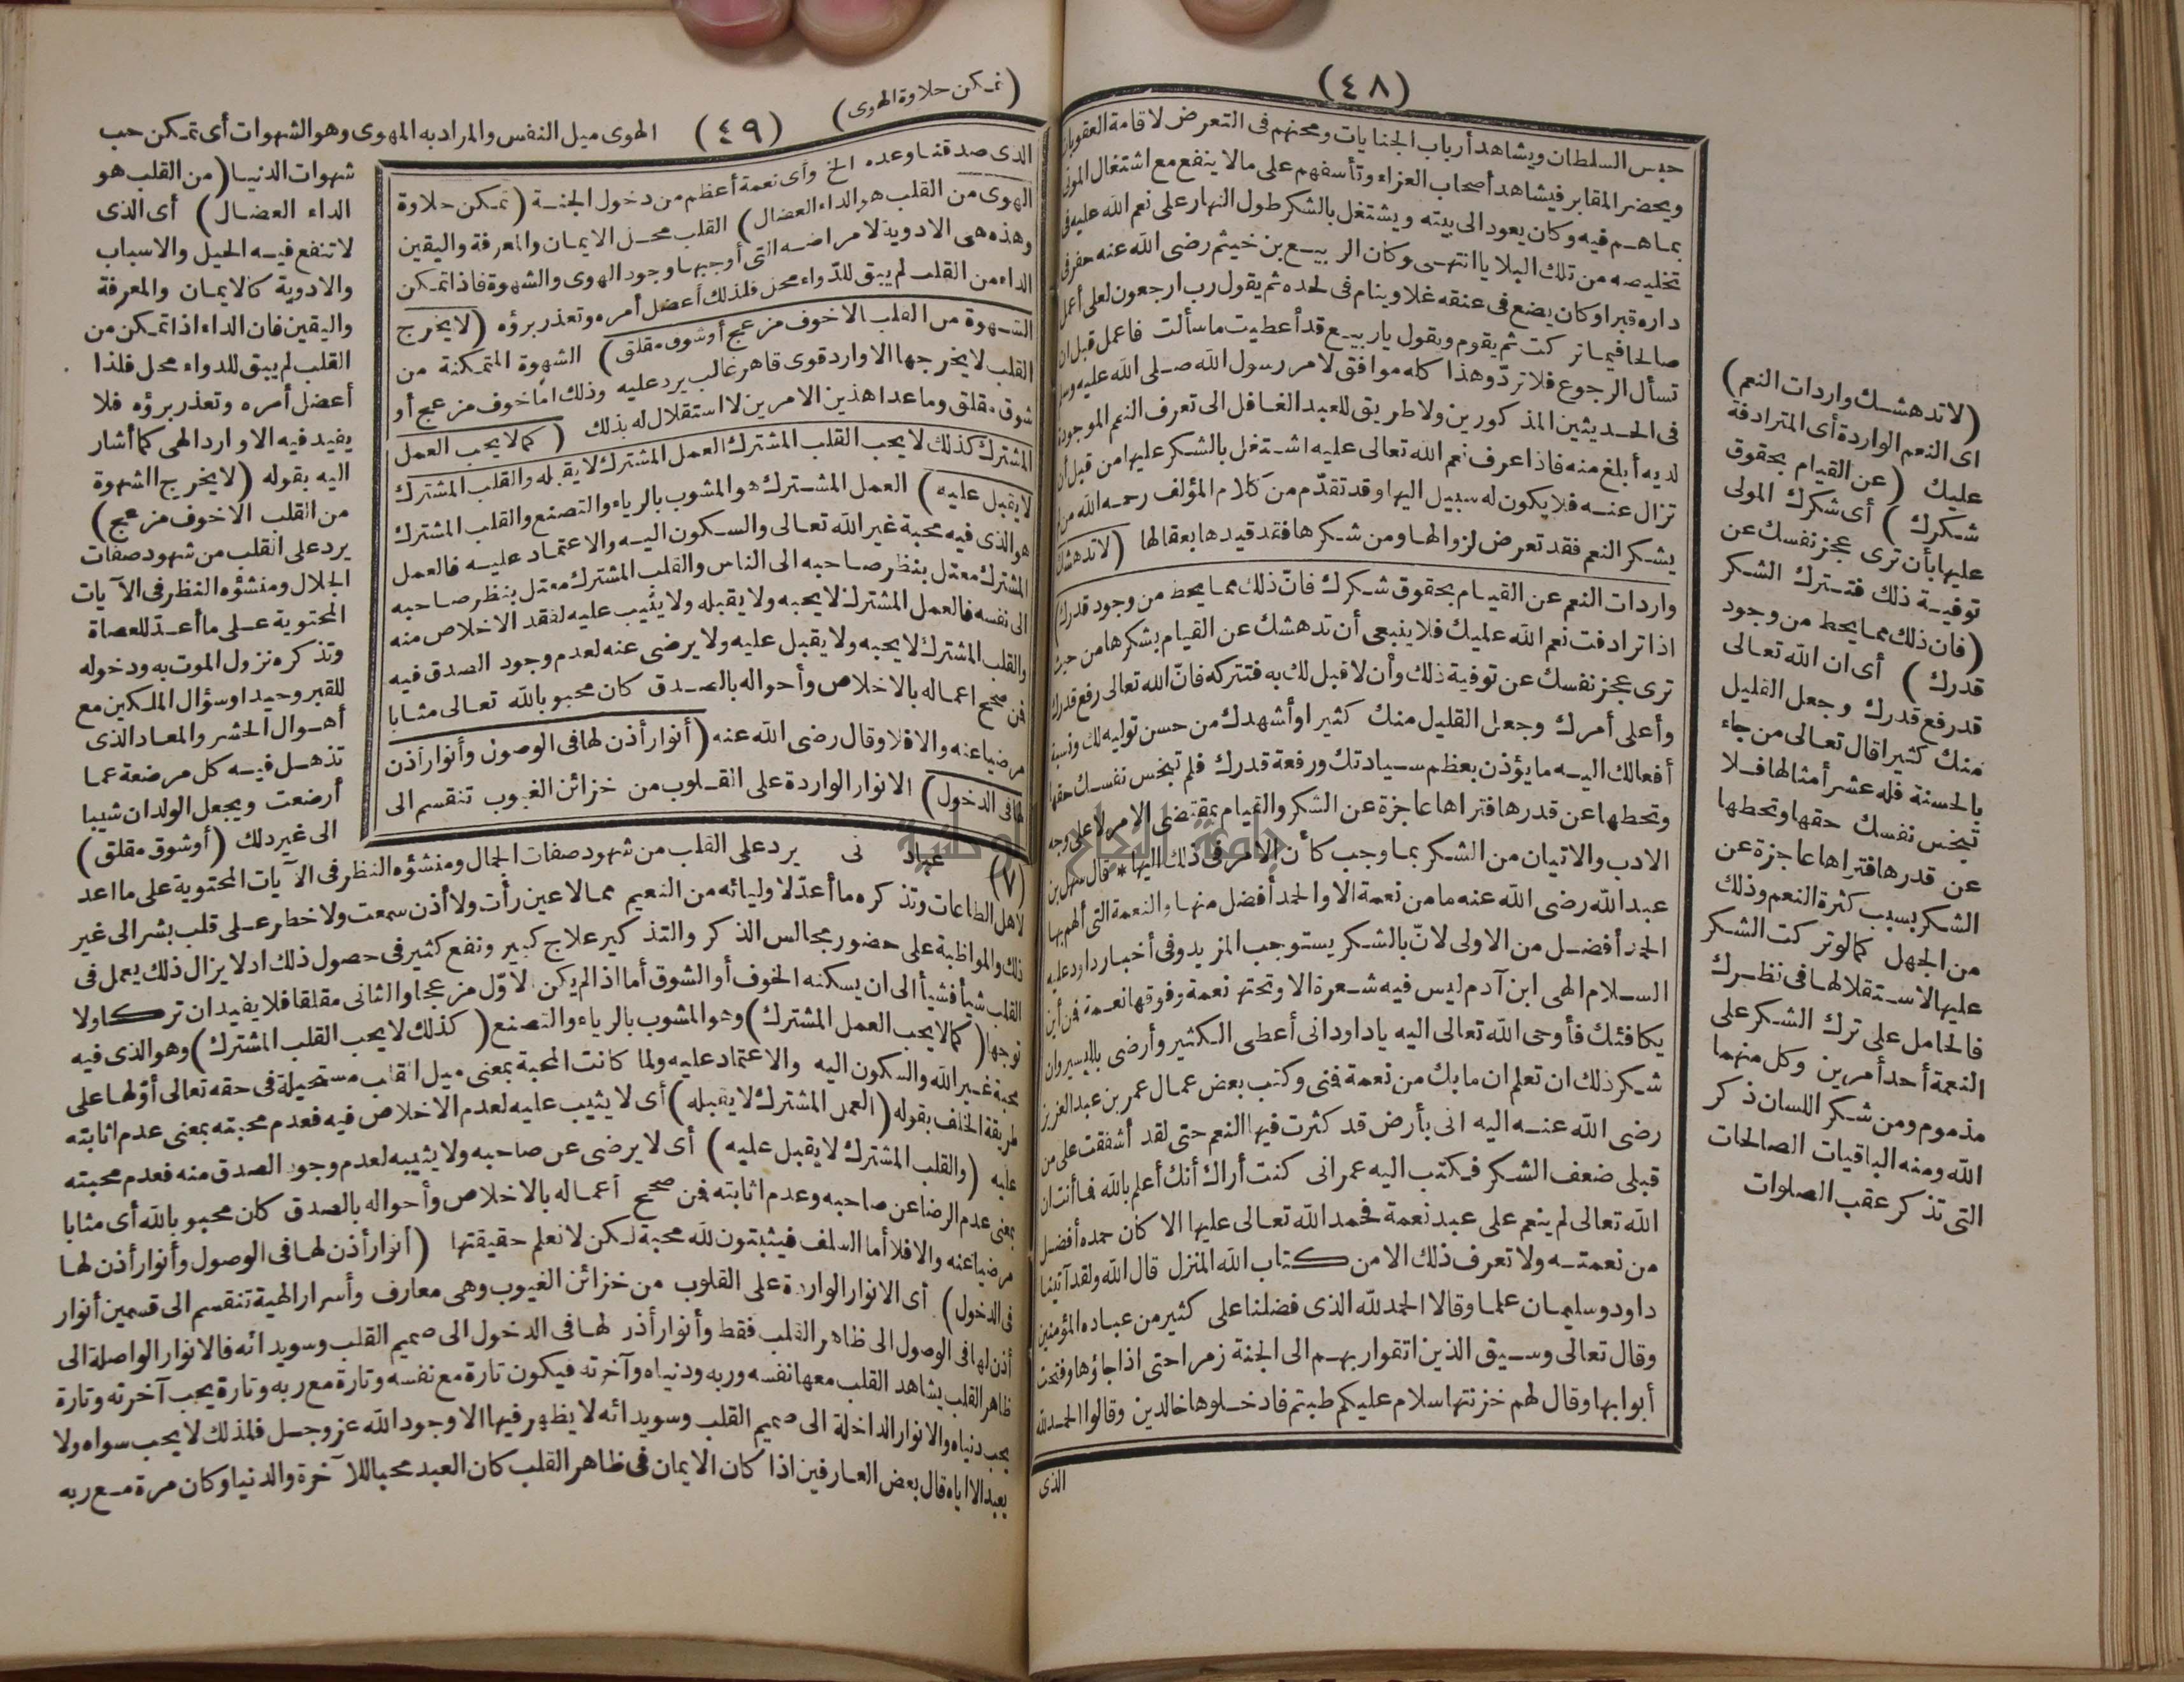 (٤٨)
حبس السلطان ويشاهد أرباب الجنايات ومحنهم فى التعرض لاقامة العقوبات
ويحضر المقابر فيشاهد أصحاب العزاء وتأسفهم على مالا ينفع مع اشتغال الموتى
بماهم فيه وكان يعود الى بيته ويشتغل بالشكر طول النهار على نعم الله عليه فى
تخليصه من تلك البلايا انتهى وكان الربيع بن خيثم رضى الله عنه حفر فى
داره قبرا وكان يضع فى عنقه غلا وينام فى لحده ثم يقول رب ارجعون لعلى أعمل
صالحا فيما تركت ثم يقوم ويقول ياربيع قد أعطيت ما سألت فاعمل قبل ان
تسأل الرجوع فلا تردّ وهذا كله موافق لامر رسول الله صلى الله عليه وسلم
فى الحديثين المذكورين ولا طريق للعبد الغافل الى تعرف النعم الموجودة
لديه أبلغ منه فاذا عرف نعم الله تعالى عليه اشتغل بالشكر عليها من قبل أن
تزال عنه فلا يكون له سبيل اليها وقد تقدّم من كلام المؤلف رحمه الله من لم
يشكر النعم فقد تعرض لزوالها ومن شكرها فقد قيدها بعقالها (لا تدهشك
واردات النعم عن القيام بحقوق شكرك فانّ ذلك مما يحط من وجود قدرك)
اذا ترادفت نعم الله عليك فلا ينبغى أن تدهشك عن القيام بشكرها من حيث
ترى عجز نفسك عن توفية ذلك وأن لا قبل لك به فتتركه فانّ الله تعالى رفع قدرك
وأعلى أمرك وجعل القليل منك كثيرا وأشهدك من حسن توليه لك ونسبة
أفعالك اليه ما يؤذن بعظم سيادتك ورفعة قدرك فلم تبخس نفسك حقها
وتحطها عن قدرها فتراها عاجزة عن الشكر والقيام بمقتضى الامر لا على وجه
الادب والاتيان من الشكر بما وجب كأن الامر فى ذلك اليها * قال سهل بن
عبد الله رضى الله عنه ما من نعمة الا والحمد أفضل منها والنعمة التى ألهم بها
الحمد أفضل من الاولى لانّ بالشكر يستوجب المزيد وفى أخبار داود عليه
السلام الهى ابن آدم ليس فيه شعرة الا وتحتها نعمة وفوقها نعمة فمن أين
يكافئك فأوحى الله تعالى اليه ياداود انى أعطى الكثير وأرضى باليسير وان
شكر ذلك ان تعلم ان ما بك من نعمة فمنى وكتب بعض عمال عمر بن عبد العزيز
رضى الله عنه اليه انى بأرض قد كثرت فيها النعم حتى لقد أشفقت على من
قبلى ضعف الشكر فكتب اليه عمر انى كنت أراك أنك أعلم بالله فما أنت ان
الله تعالى لم ينعم على عبد نعمة فحمد الله تعالى عليها الا كان حمده أفضل
من نعمته ولا تعرف ذلك الا من كتاب الله المنزل قال الله ولقد آتينا
داود وسليمان علما وقالا الحمد لله الذى فضلنا على كثير من عباده المؤمنين
وقال تعالى وسيق الذين اتقوا ربهم الى الجنة زمرا حتى اذا جاؤها وفتحت
أبوابها وقال لهم خزنتها سلام عليكم طبتم فادخلوها خالدين وقالوا الحمد لله
الذى
(لا تدهشك واردات النعم)
اى النعم الواردة أى المترادفة
عليك (عن القيام بحقوق
شكرك) أى شكرك المولى
عليها بأن ترى عجز نفسك عن
توفية ذلك فتترك الشكر
(فان ذلك مما يحط من وجود
قدرك) أى ان الله تعالى
قد رفع قدرك وجعل القليل
منك كثيرا قال تعالى من جاء
بالحسنة فله عشر أمثالها فلا
تبخس نفسك حقها وتحطها
عن قدرها فتراها عاجزة عن
الشكر بسبب كثرة النعم وذلك
من الجهل كما لو تركت الشكر
عليها لاستقلالها فى نظرك
فالحامل على ترك الشكر على
النعمة أحد أمرين وكل منهما
مذموم ومن شكر اللسان ذكر
الله ومنه الباقيات الصالحات
التى تذكر عقب الصلوات
(تمكن حلاوة الهوى)
(٤٩)
الهوى ميل النفس والمراد به المهوى وهو الشهوات أى تمكن حب
شهوات الدنيا (من القلب هو
الداء العضال) أى الذى
لا تنفع فيه الحيل والاسباب
والادوية كالايمان والمعرفة
واليقين فان الداء اذا تمكن من
القلب لم يبق للدواء محل فلذا
أعضل أمره وتعذر برؤه فلا
يفيد فيه الا وارد الهى كما أشار
اليه بقوله (لا يخرج الشهوة
من القلب الا خوف مزعج)
يرد على القلب من شهود صفات
الجلال ومنشؤه النظر فى الآيات
المحتوية على ما أعد للعصاة
وتذكره نزول الموت به ودخوله
للقبر وحيدا وسؤال الملكين مع
أهوال الحشر والمعاد الذى
تذهل فيه كل مرضعة عما
أرضعت ويجعل الولدان شيبا
الى غير ذلك (أو شوق مقلق)
الذى صدقنا وعده الخ وأى نعمة أعظم من دخول الجنة (تمكن حلاوة
الهوى من القلب هو الداء العضال) القلب محل الايمان والمعرفة واليقين
وهذه هى الادوية لامراضه التى أوجبها وجود الهوى والشهوة فاذا تمكن
الداء من القلب لم يبق للدّواء محل فلذلك أعضل أمره وتعذر برؤه (لا يخرج
الشهوة من القلب الا خوف مزعج أو شوق مقلق) الشهوة المتمكنة من
القلب لا يخرجها الا وارد قوى قاهر غالب يرد عليه وذلك امّا خوف مزعج أو
شوق مقلق وما عدا هذين الامرين لا استقلال له بذلك (كما لا يحب العمل
المشترك كذلك لا يحب القلب المشترك العمل المشترك لا يقبله والقلب المشترك
لا يقبل عليه) العمل المشترك هو المشوب بالرياء والتصنع والقلب المشترك
هو الذى فيه محبة غير الله تعالى والسكون اليه والاعتماد عليه فالعمل
المشترك معتل بنظر صاحبه الى الناس والقلب المشترك معتل بنظر صاحبه
الى نفسه فالعمل المشترك لا يحبه ولا يقبله ولا يثيب عليه لفقد الاخلاص منه
والقلب المشترك لا يحبه ولا يقبل عليه ولا يرضى عنه لعدم وجود الصدق فيه
فمن صحح اعماله بالاخلاص وأحواله بالصدق كان محبوبا لله تعالى مثابا
مرضيا عنه والا فلا وقال رضى الله عنه (أنوار أذن لها فى الوصول وأنوار أذن
لها فى الدخول) الانوار الواردة على القلوب من خزائن الغيوب تنقسم الى
(٧) عباد نى
يرد على القلب من شهود صفات الجمال ومنشؤه النظر فى الآيات المحتوية على ما اعد
لاهل الطاعات وتذكره ما أعدّ لاوليائه من النعيم مما لا عين رأت ولا أذن سمعت ولا خطر على قلب بشر الى غير
ذلك والمواظبة على حضور مجالس الذكر والتذكير علاج كبير ونفع كثير فى حصول ذلك اذ لا يزال ذلك يعمل فى
القلب شيأ فشيأ الى ان يسكنه الخوف أو الشوق أما اذا لم يكن الاوّل مزعجا والثانى مقلقا فلا يفيد ان تركا ولا
توجها (كما لا يحب العمل المشترك) وهو المشوب بالرياء والتصنع (كذلك لا يحب القلب المشترك) وهو الذى فيه
محبة غير الله والسكون اليه والاعتماد عليه ولما كانت المحبة بمعنى ميل القلب مستحيلة فى حقه تعالى أوّلها على
طريقة الخلف بقوله (العمل المشترك لا يقبله) أى لا يثيب عليه لعدم الاخلاص فيه فعدم محبته بمعنى عدم اثابته
عليه (والقلب المشترك لا يقبل عليه) أى لا يرضى عن صاحبه ولا يثيبه لعدم وجود الصدق منه فعدم محبته
بمعنى عدم الرضا عن صاحبه وعدم اثابته فمن صحح أعماله بالاخلاص وأحواله بالصدق كان محبوبا لله أى مثابا
مرضيا عنه والا فلا أما السلف فيثبتون لله محبة لكن لا نعلم حقيقتها (أنوار أذن لها فى الوصول وأنوار أذن لها
فى الدخول) أى الانوار الواردة على القلوب من خزائن الغيوب وهى معارف وأسرار الهية تنقسم الى قسمين أنوار
أذن لها فى الوصول الى ظاهر القلب فقط وأنوار أذن لها فى الدخول الى صميم القلب وسويدائه فالانوار الواصلة الى
ظاهر القلب يشاهد القلب معها نفسه وربه ودنياه وآخرته فيكون تارة مع نفسه وتارة مع ربه وتارة يحب آخرته وتارة
يحب دنياه والانوار الداخلة الى صميم القلب وسويدائه لا يظهر فيها الا وجود الله عز وجل فلذلك لا يحب سواه ولا
يعبد الا اياه قال بعض العارفين اذا كان الايمان فى ظاهر القلب كان العبد محبا للآخرة والدنيا وكان مرة مع ربه
جامعة النجاح الوطنية